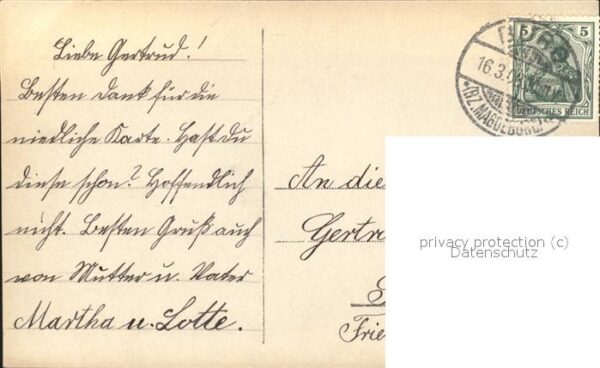 Liebe Gertrud!
Besten Dank für die
niedliche Karte. Hast du
diese schon? Hoffendlich
nicht. Besten Gruß auch
von Mutter u. Vater
Martha u. Lotte.
5 5
16.3.
(BZ. MAGDEBURG)
DEUTSCHES REICH
An die
Gertr
Frie
privacy protection (c)
Datenschutz